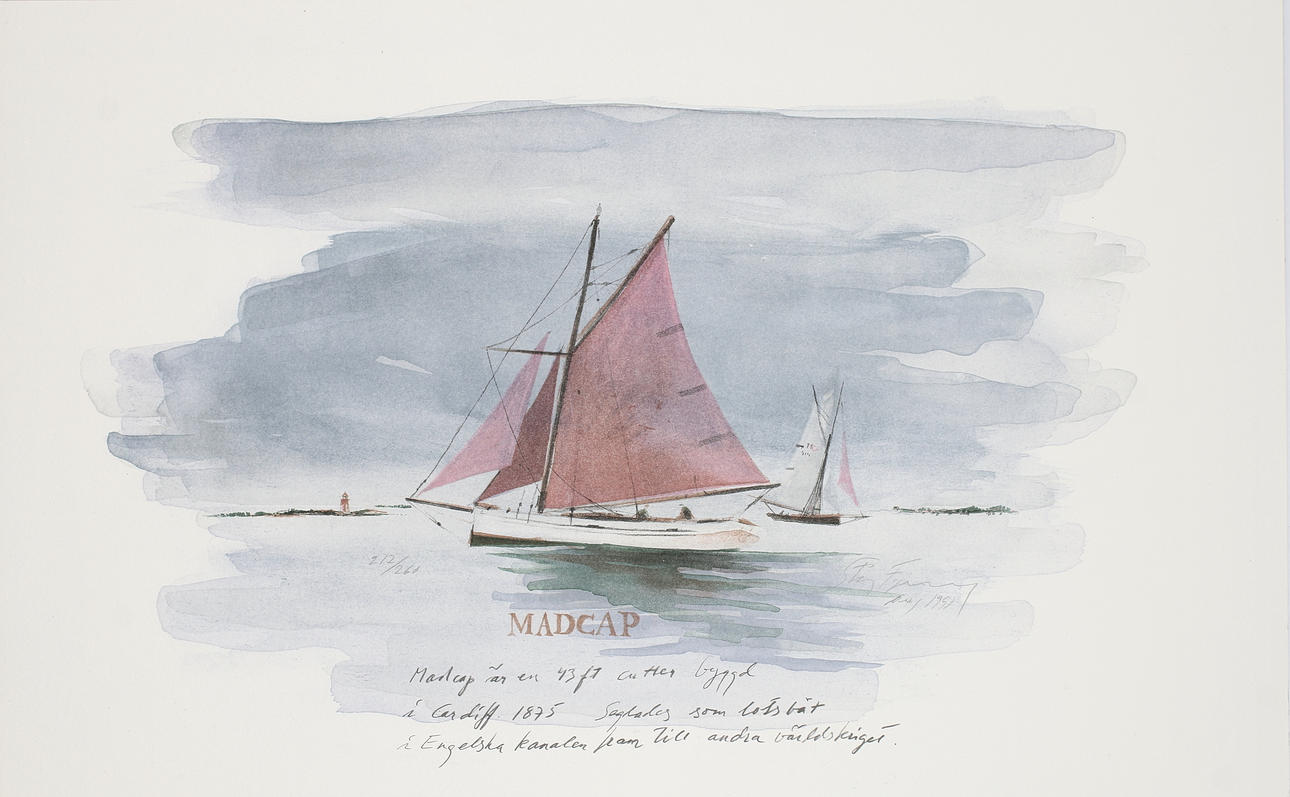 212/260
Aug 1991
MADCAP
Madcap är en 43 ft cutter byggd
i Cardiff. 1875 Seglades som lotsbåt
i Engelska kanalen fram till andra världskriget.